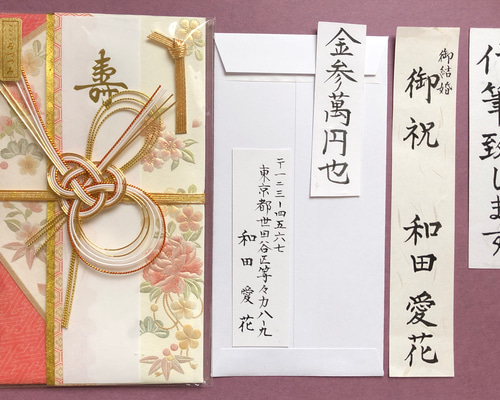 寿
金参萬円也
〒一二三-四五六七
東京都世田谷区等々力八-九
和田 愛花
御結婚
御祝 和田愛花
代筆致します